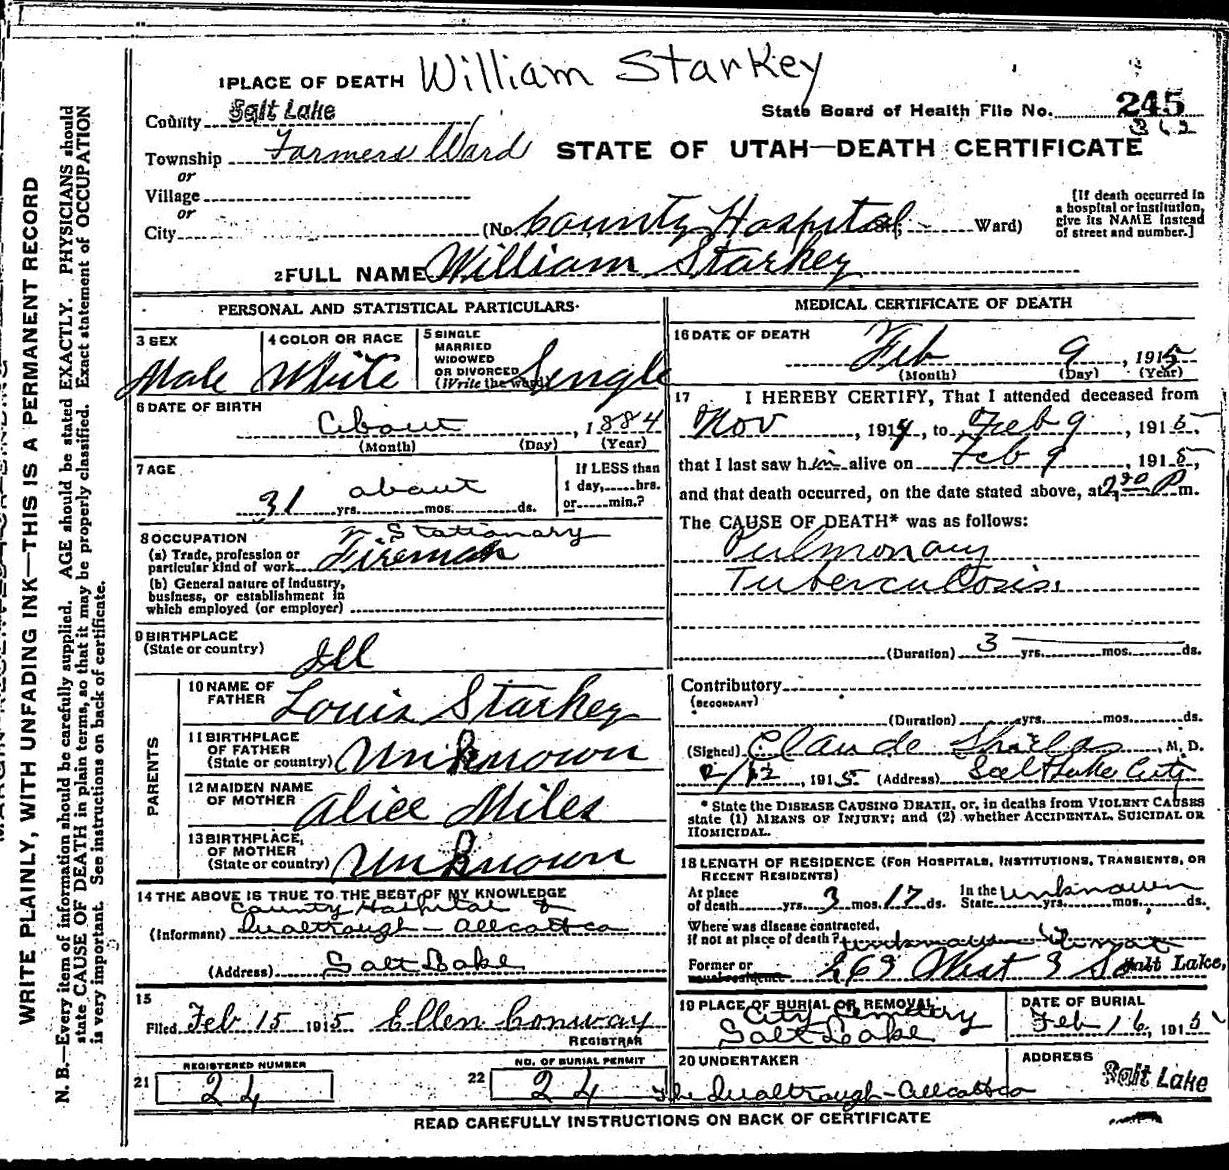 William Starkey
1 PLACE OF DEATH
State Board of Health File No. 245
362
County Salt Lake
Township Farmers Ward
STATE OF UTAH—DEATH CERTIFICATE
or
Village
or
City (No. County Hospital St; Ward)
[If death occurred in
a hospital or institution,
give its NAME instead
of street and number.]
2 FULL NAME William Starkey
PERSONAL AND STATISTICAL PARTICULARS
3 SEX
Male
4 COLOR OR RACE
White
5 SINGLE
MARRIED
WIDOWED
OR DIVORCED
(Write the word)
Single
6 DATE OF BIRTH
About , 1884
(Month) (Day) (Year)
7 AGE
31 about
yrs. mos. ds.
If LESS than
1 day, hrs.
or min.?
8 OCCUPATION
(a) Trade, profession or
particular kind of work
Stationary
Fireman
(b) General nature of industry,
business, or establishment in
which employed (or employer)
9 BIRTHPLACE
(State or country)
Ill
PARENTS
10 NAME OF
FATHER
Louis Starkey
11 BIRTHPLACE
OF FATHER
(State or country)
Unknown
12 MAIDEN NAME
OF MOTHER
Alice Miles
13 BIRTHPLACE,
OF MOTHER
(State or country)
Unknown
14 THE ABOVE IS TRUE TO THE BEST OF MY KNOWLEDGE
County Hospital &
(Informant)
(Address) Salt Lake
15
Filed Feb 15 1915 Ellen Conway
REGISTRAR
21
REGISTERED NUMBER
24
22
NO. OF BURIAL PERMIT
24
MEDICAL CERTIFICATE OF DEATH
16 DATE OF DEATH
Feb 9 , 1915
(Month) (Day) (Year)
17 I HEREBY CERTIFY, That I attended deceased from
Nov , 1914, to Feb 9 , 1915,
that I last saw him alive on Feb 9 , 1915,
and that death occurred, on the date stated above, at 2 30 P m.
The CAUSE OF DEATH* was as follows:
Pulmonary
Tuberculosis.
(Duration) 3 yrs. mos. ds.
Contributory
(SECONDARY)
(Duration) yrs. mos. ds.
(Signed) Claude Shields , M. D.
2/12 , 1915 (Address) Salt Lake City
* State the DISEASE CAUSING DEATH, or, in deaths from VIOLENT CAUSES
state (1) MEANS OF INJURY; and (2) whether ACCIDENTAL, SUICIDAL OR
HOMICIDAL.
18 LENGTH OF RESIDENCE (FOR HOSPITALS, INSTITUTIONS, TRANSIENTS, OR
RECENT RESIDENTS)
At place
of death yrs. 3 mos. 17 ds.
In the
State unknown yrs. mos. ds.
Where was disease contracted,
if not at place of death?
Former or
usual residence
269 West 3 So Salt Lake,
19 PLACE OF BURIAL OR REMOVAL
City Cemetery
Salt Lake
DATE OF BURIAL
Feb 16, 1915
20 UNDERTAKER
ADDRESS
Salt Lake
READ CAREFULLY INSTRUCTIONS ON BACK OF CERTIFICATE
WRITE PLAINLY, WITH UNFADING INK—THIS IS A PERMANENT RECORD
N. B.—Every item of information should be carefully supplied. AGE should be stated EXACTLY. PHYSICIANS should
state CAUSE OF DEATH in plain terms, so that it may be properly classified. Exact statement of OCCUPATION
is very important. See instructions on back of certificate.